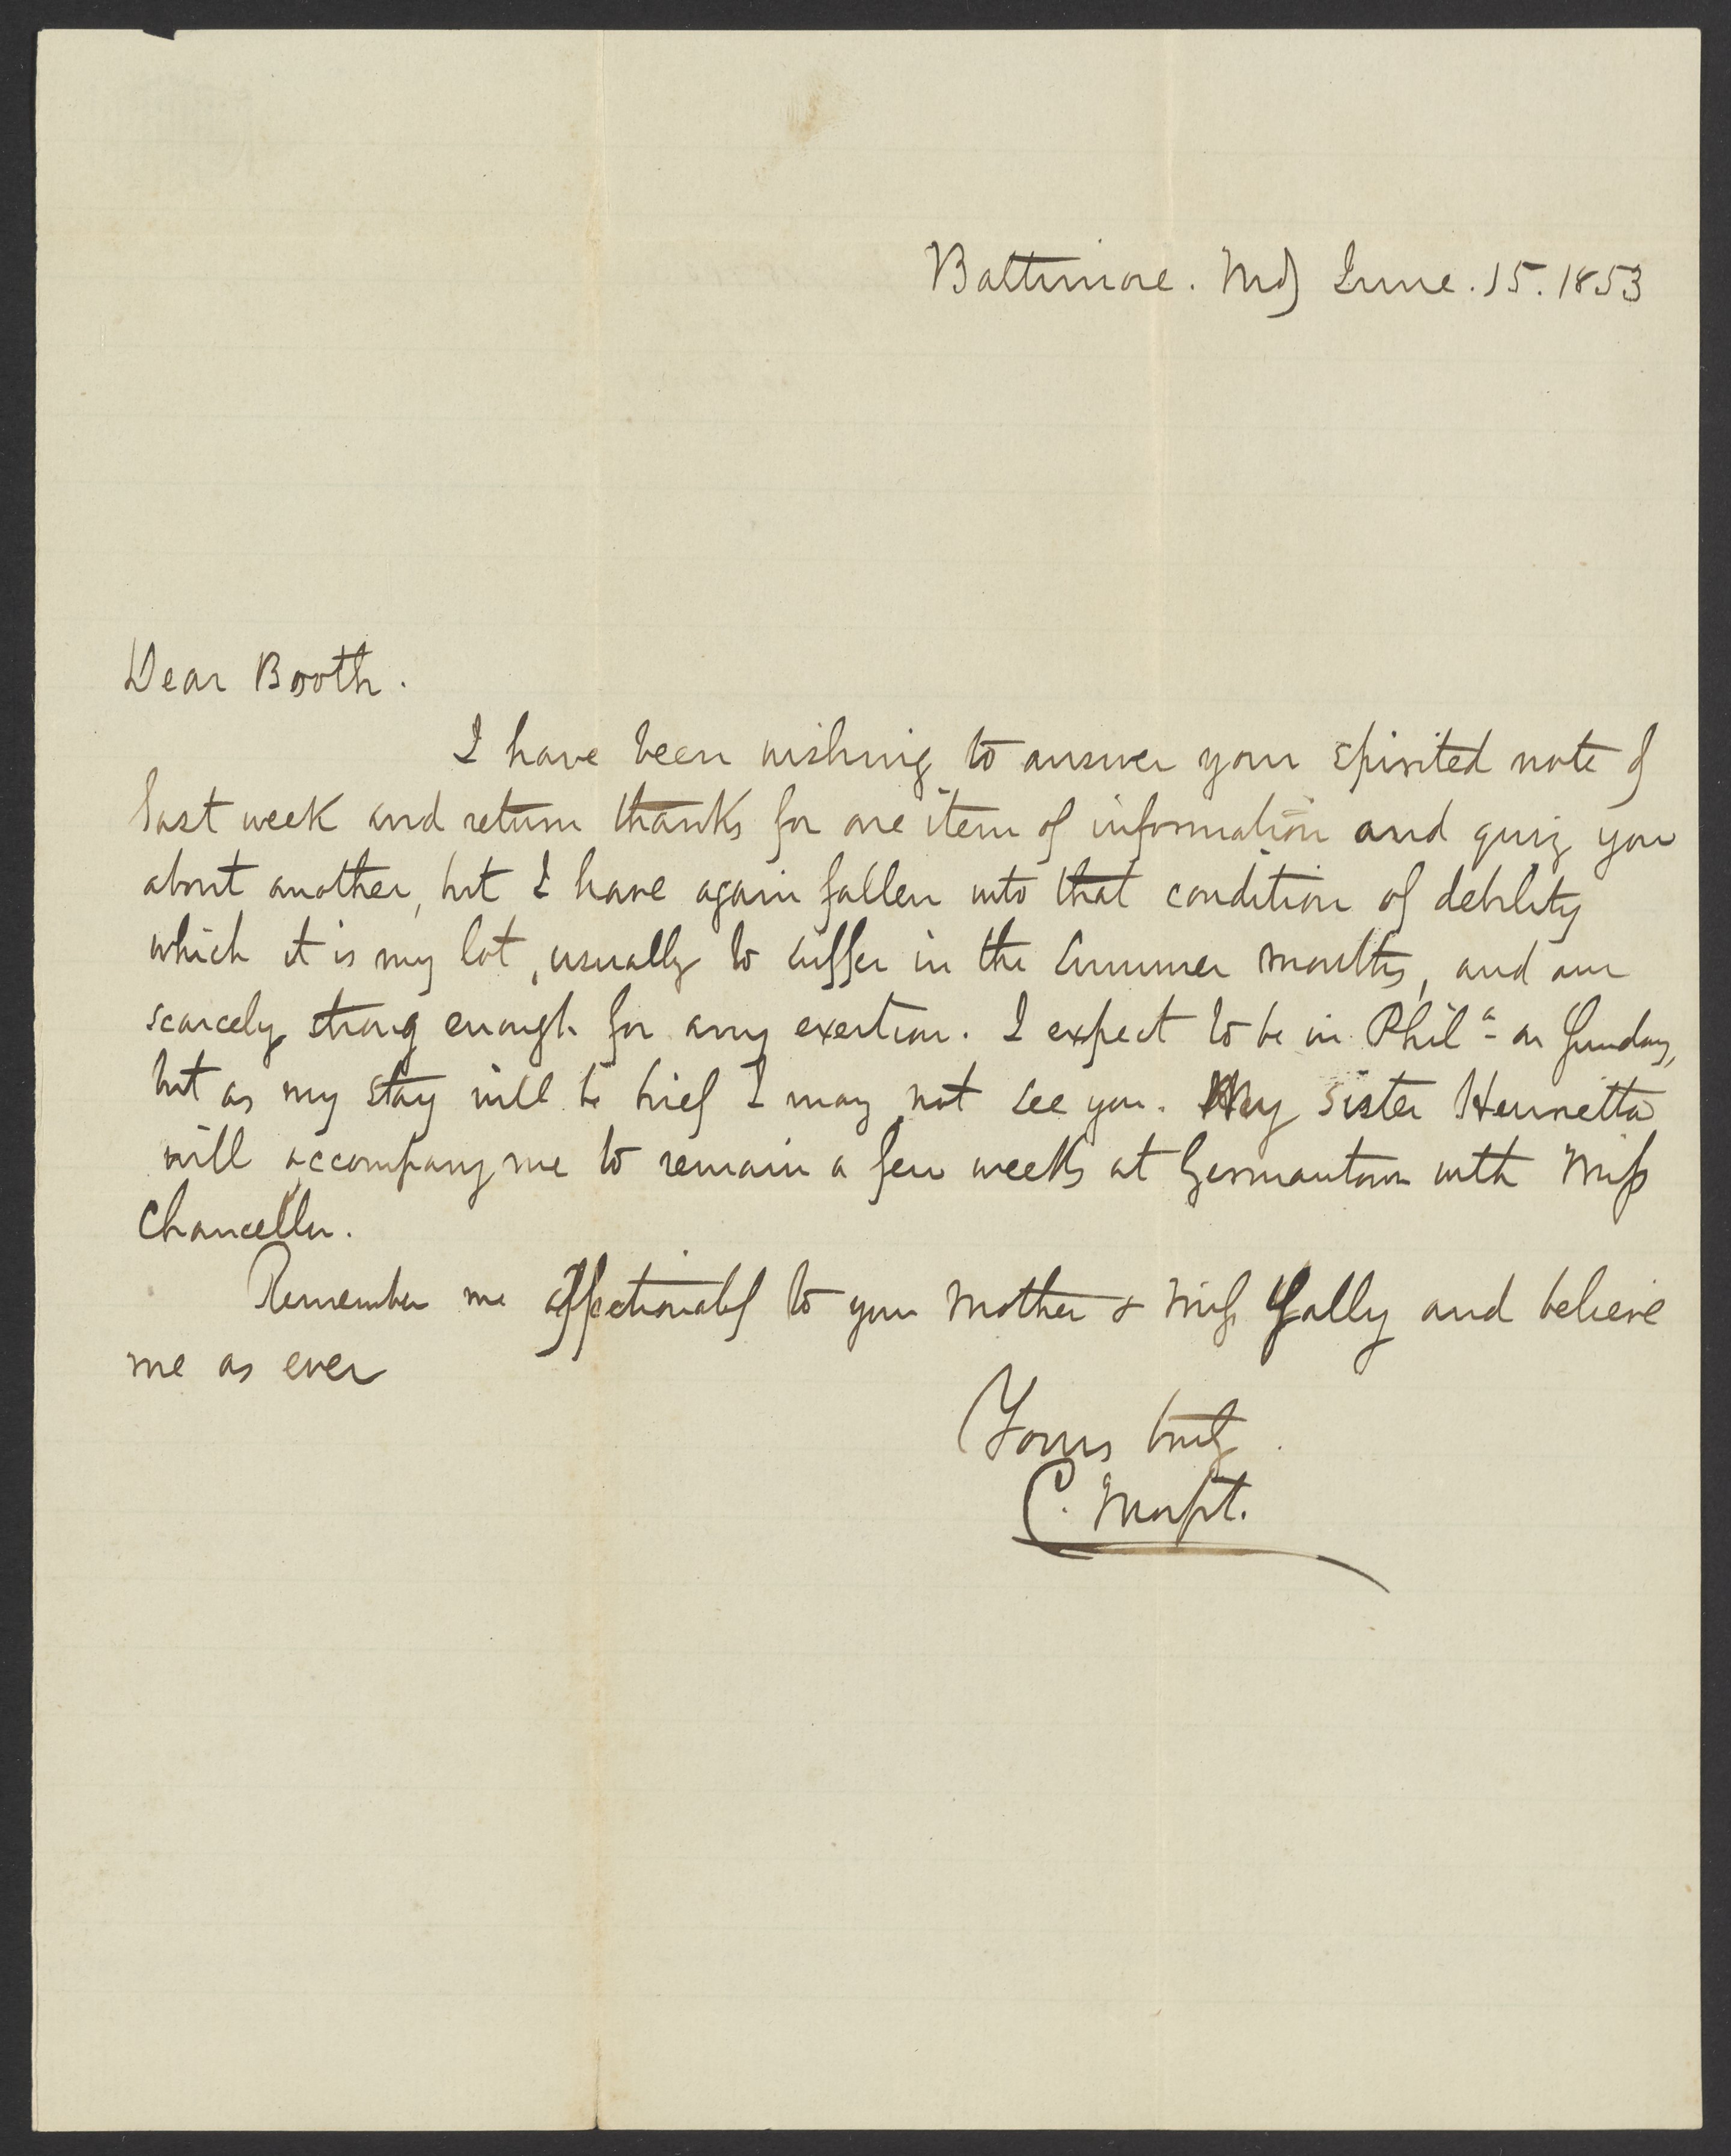 Baltimore. Md) June. 15. 1853
Dear Booth.
I have been wishing to answer your spirited note of
last week and return thanks for one item of information and quiz you
about another, but I have again fallen into that condition of debility
which it is my lot, usually to suffer in the Summer months, and am
scarcely strong enough for any exertion. I expect to be in Philᵃ on Sunday,
but as my stay will be brief I may not see you. My sister Henrietta
will accompany me to remain a few weeks at Germantown with Miss
Chancellor.
Remember me affectionately to your Mother & Miss and believe
me as ever
Yours truly.
C. Morfit.